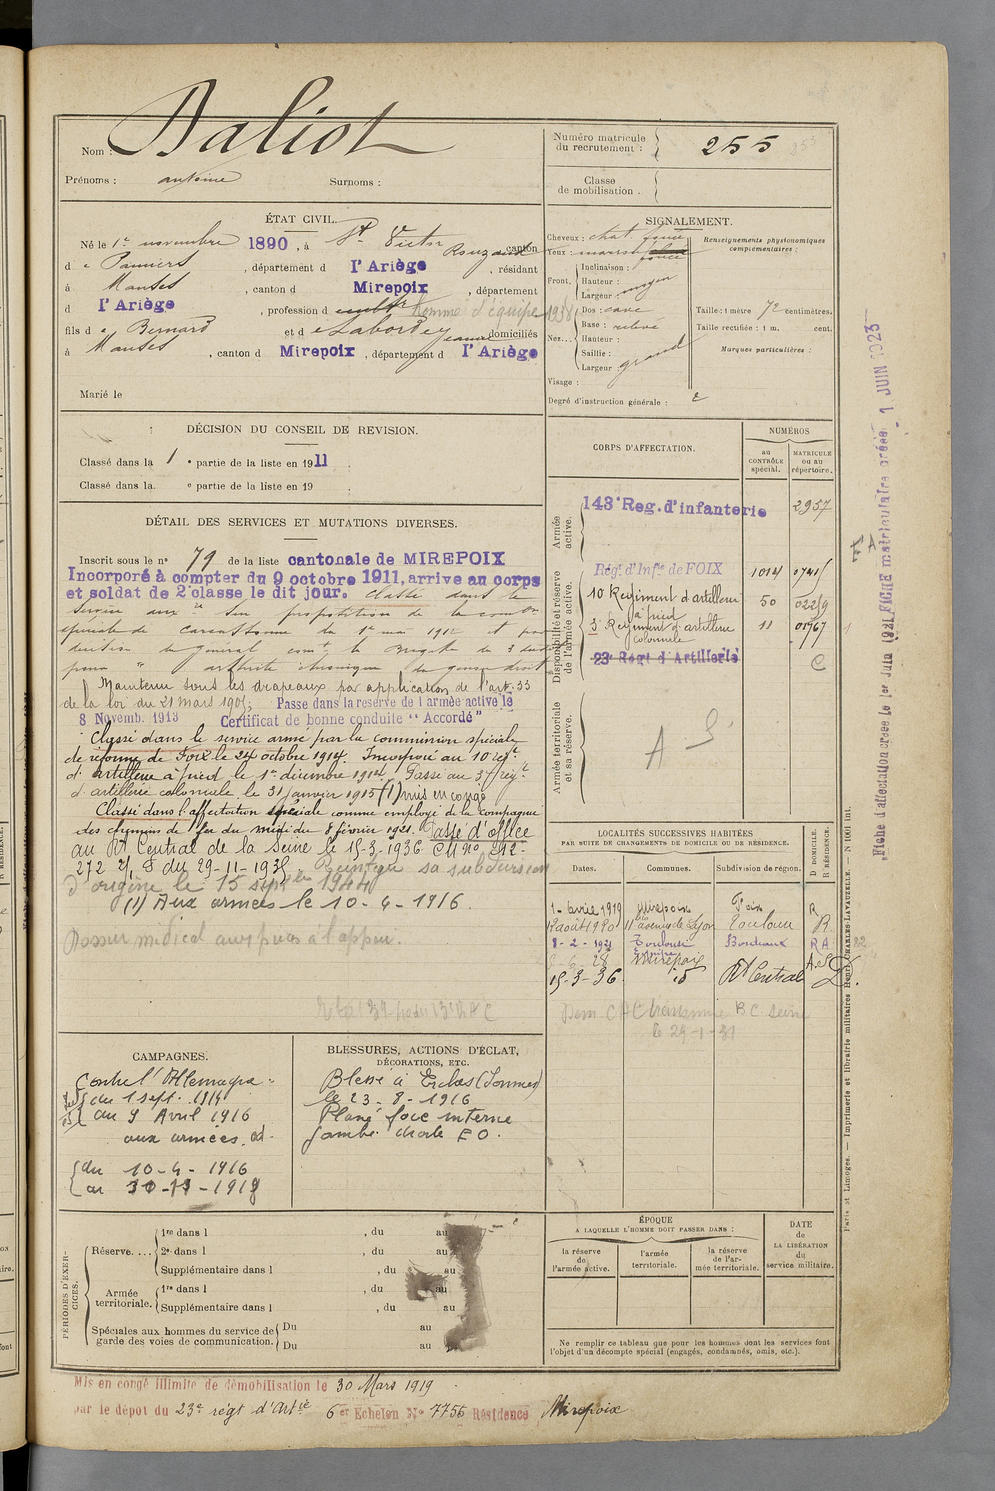 Nom : Daliot
Prénoms : antoine Surnoms :
Numéro matricule du recrutement : 255
Classe de mobilisation .
ÉTAT CIVIL.
Né le 1er novembre 1890, à St Victor Rouzaud canton
d e Pamiers, département d l'Ariège, résidant
à Manses, canton d Mirepoix, département
d l'Ariège, profession d cultr homme d'équipe 1938
fils d e Bernard et d e Laborde Jeanne domiciliés
à Manses, canton d Mirepoix, département d l'Ariège
Marié le
SIGNALEMENT.
Cheveux : chat foncé
Yeux : marron foncé
Front, Inclinaison :
Hauteur :
Largeur : moyen
Nez... Dos : cave
Base : relevé
Hauteur :
Saillie :
Largeur : grand
Visage :
Degré d'instruction générale : 2
Renseignements physionomiques complémentaires :
Taille : 1 mètre 72 centimètres.
Taille rectifiée : 1 m. cent.
Marques particulières :
DÉCISION DU CONSEIL DE REVISION.
Classé dans la 1 e partie de la liste en 1911
Classé dans la e partie de la liste en 19 .
DÉTAIL DES SERVICES ET MUTATIONS DIVERSES.
Inscrit sous le n° 79 de la liste cantonale de MIREPOIX
Incorporé à compter du 9 octobre 1911, arrive au corps
et soldat de 2e classe le dit jour. Classé dans le
service aux re sur proposition de la comon
spéciale de Carcassonne du 1er mai 1912 et par
décision du général comt la Brigade du 3 dudit
pour " arthrite chronique du genou droit
Maintenu sous les drapeaux par application de l'art. 33
de la loi du 21 mars 1905; Passe dans la réserve de l'armée active le
8 Novemb. 1913 Certificat de bonne conduite "Accordé"
Classé dans le service armé par la commission spéciale
de réforme de Foix le 24 octobre 1914. Incorporé au 10 régt
d'artillerie à pied le 1er décembre 1914. Passé au 3e régt
d'artillerie coloniale le 31 janvier 1915 (1) mis en congé
Classé dans l'affectation spéciale comme employé de la compagnie
des chemins de fer du midi du 8 février 1921. Passe d'office
au Rt Central de la Seine le 15-3-1936 CM no 212-
272 2/1 S du 29-11-1935 Réintégré sa subdivision
d'origine le 15 septbre 1944
(1) Aux armées le 10-4-1916.
Dossier médical aux pièces à l'appui.
CORPS D'AFFECTATION.
NUMÉROS
au CONTRÔLE spécial.
MATRICULE ou au répertoire.
Armée active.
143e Reg. d'infanterie 2957
Disponibilité et réserve de l'armée active.
Rég. d'Infie de FOIX 1014
10 Régiment d'artillerie à pied 50
3e Régiment d'artillerie coloniale 11 01767
23e Régt d'Artillerie C
Armée territoriale et sa réserve.
A S
LOCALITÉS SUCCESSIVES HABITÉES
PAR SUITE DE CHANGEMENTS DE DOMICILE OU DE RÉSIDENCE.
Dates. Communes. Subdivision de région. D DOMICILE. R RÉSIDENCE.
1-Avril 1919 Mirepoix Foix R
12 août 1920 11 bis avenue de Lyon Toulouse R
8-2-1921 Toulouse Bordeaux R A
28 Mirepoix A.S
15-3-36. id Rt Central D.
CAMPAGNES.
Contre l'Allemagne :
du 1 sept. 1914
au 9 Avril 1916
aux armées.
du 10-4-1916
au 30-11-1918
BLESSURES, ACTIONS D'ÉCLAT,
DÉCORATIONS, ETC.
Blessé à Erches (Somme)
le 23-8-1916
Plaie face interne
jambe droite EO.
PÉRIODES D'EXERCICES.
Réserve.... 1re dans l , du au
2e dans l , du au
Supplémentaire dans l , du au
Armée territoriale. 1re dans l , du au
Supplémentaire dans l , du au
Spéciales aux hommes du service de garde des voies de communication. Du au
Du au
ÉPOQUE
A LAQUELLE L'HOMME DOIT PASSER DANS :
la réserve de l'armée active.
l'armée territoriale.
la réserve de l'armée territoriale.
DATE de LA LIBÉRATION du service militaire.
Ne remplir ce tableau que pour les hommes dont les services font
l'objet d'un décompte spécial (engagés, condamnés, omis, etc.).
Mis en congé illimité de démobilisation le 30 Mars 1919
par le dépôt du 23e régt d'Artie 6er Echelon No 7755 Résidence Mirepoix
Fiche d'affectation créée le 1er Juin 1921 FICHE matriculaire créée 1 JUIN 1923
Paris et Limoges. — Imprimerie et librairie militaires Henri CHARLES-LAVAUZELLE.